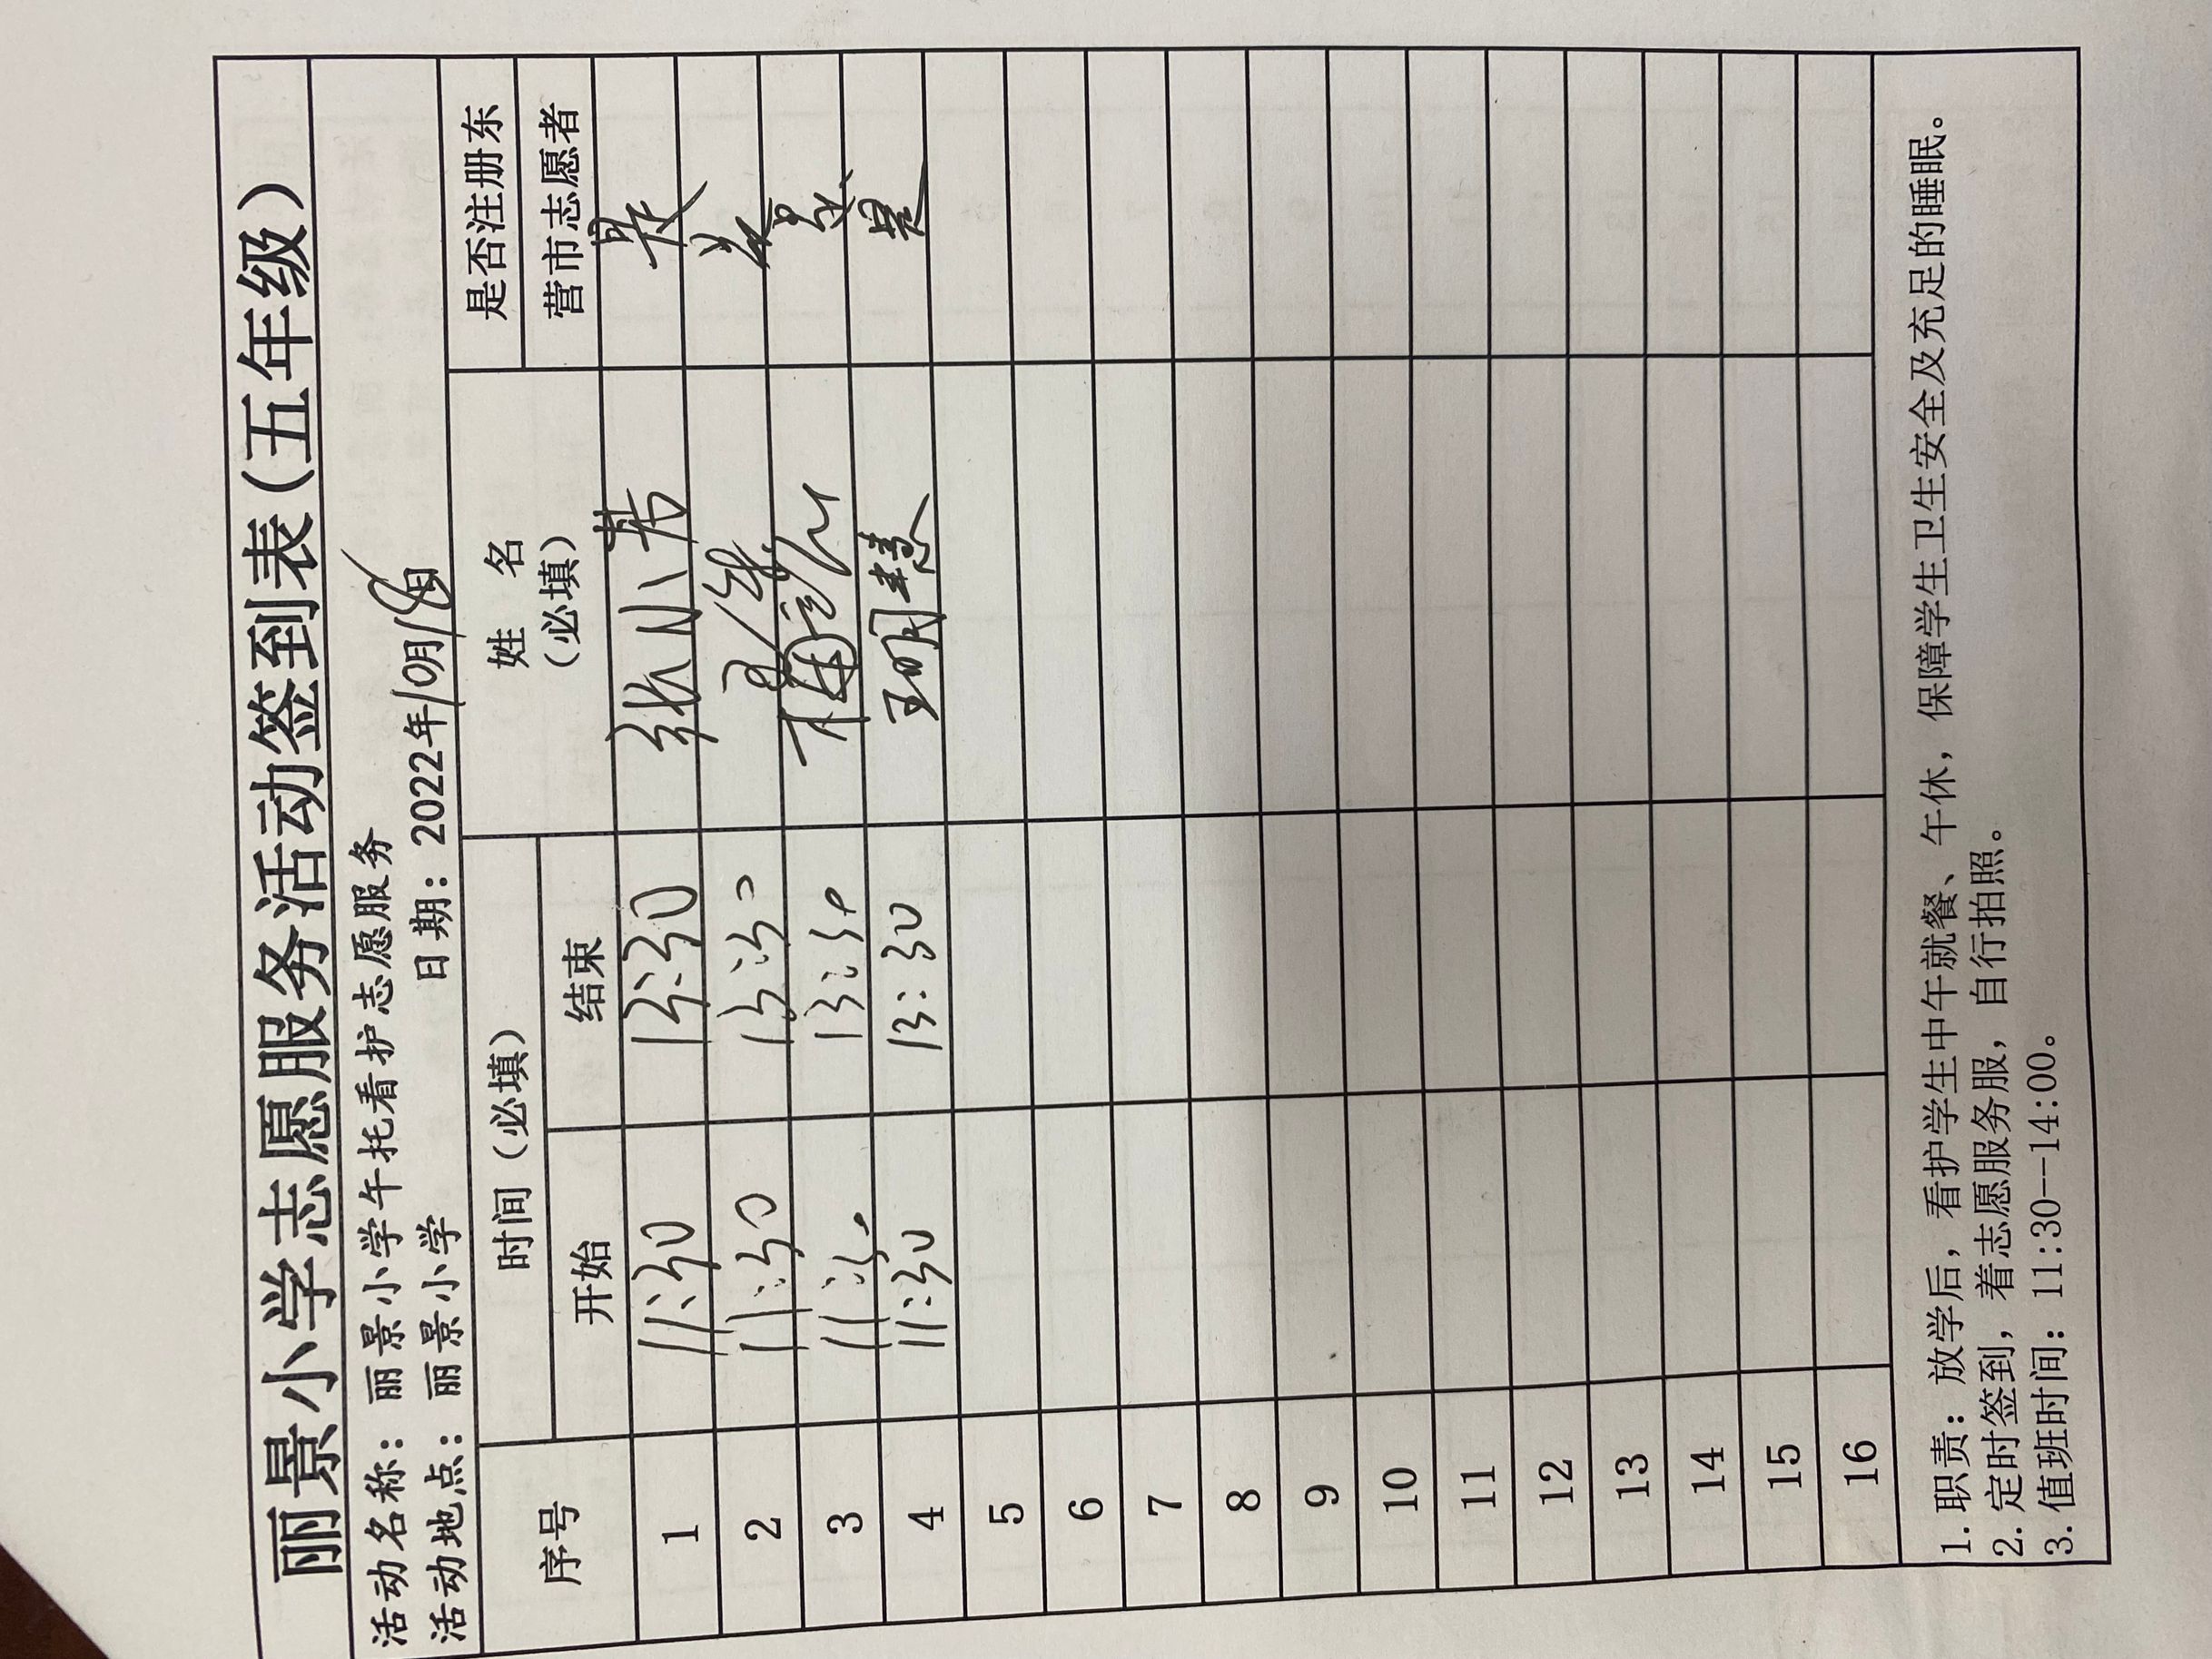 丽景小学志愿服务活动签到表（五年级）
活动名称：丽景小学午托看护志愿服务
活动地点：丽景小学 日期：2022年10月18日
序号 时间（必填） 姓 名（必填） 是否注册东营市志愿者
开始 结束
1 11:30 13:30 张小芳 是
2 11:30 13:30 是
3 13:30 是
4 11:30 13:30 王明慧 是
5
6
7
8
9
10
11
12
13
14
15
16
1. 职责：放学后，看护学生中午就餐、午休，保障学生卫生安全及充足的睡眠。
2. 定时签到，着志愿服务服，自行拍照。
3. 值班时间：11:30--14:00。